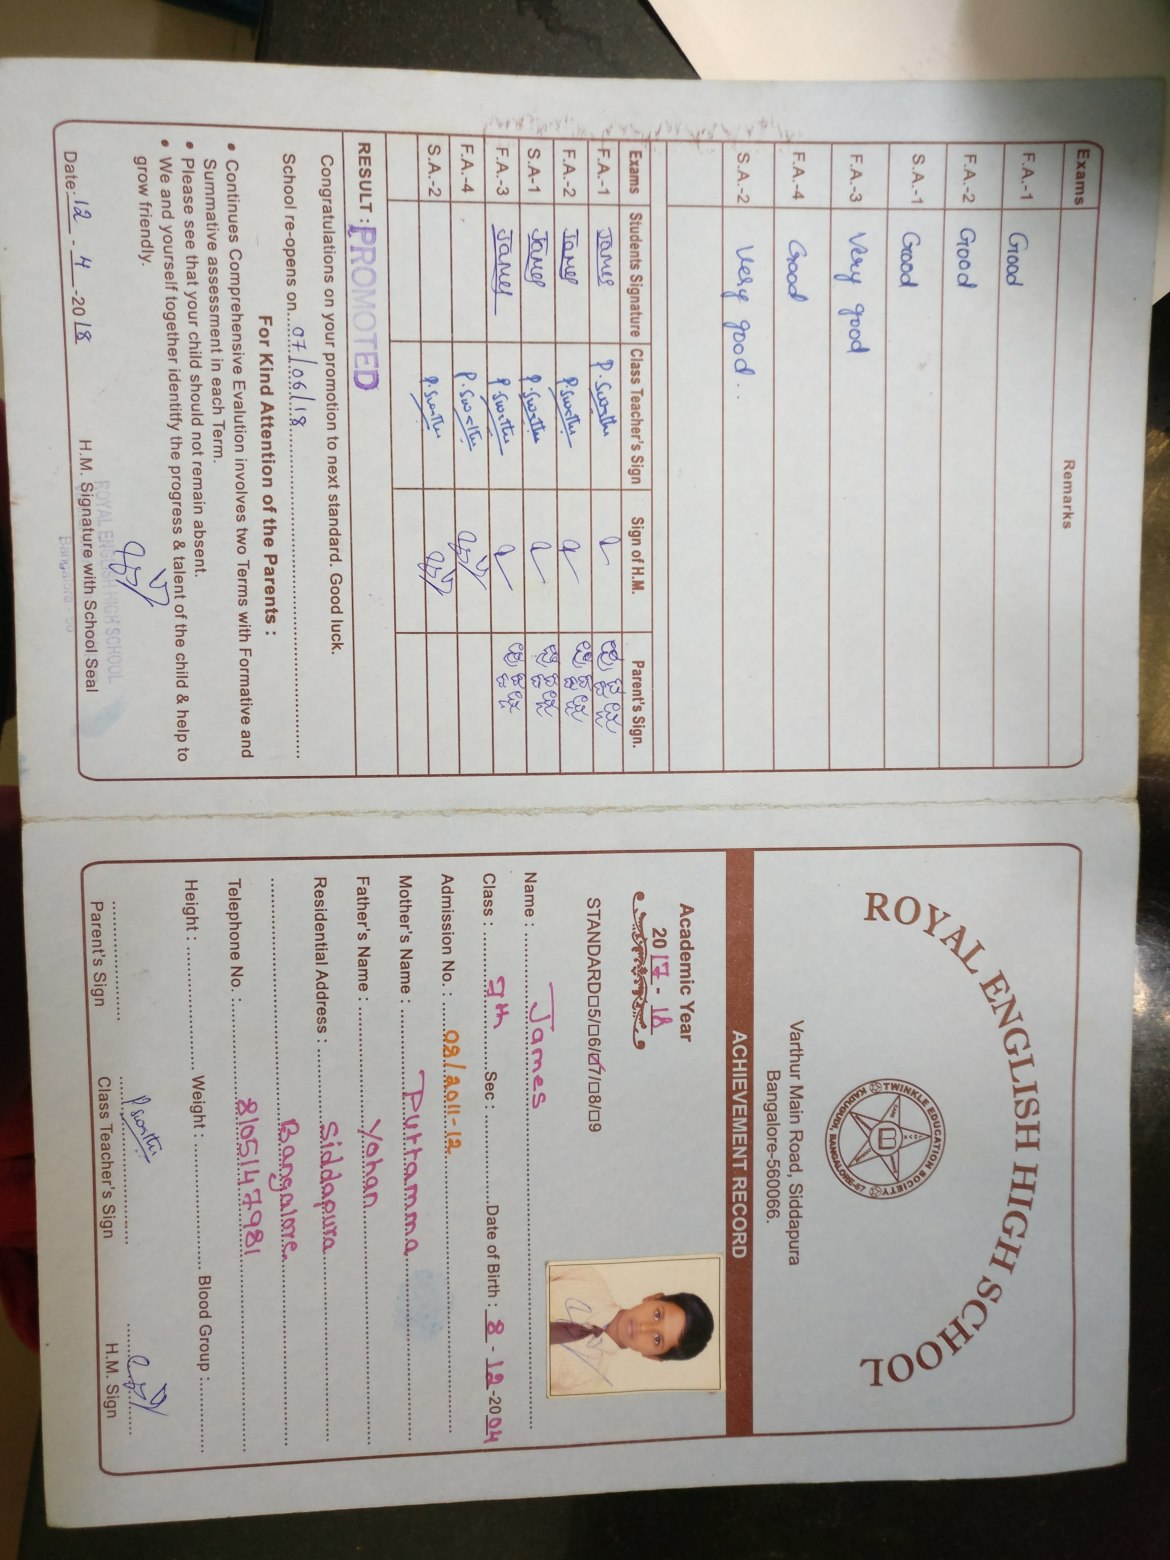 Exams Remarks
F.A.-1 Good
F.A.-2 Good
S.A.-1 Good
F.A.-3 Very good
F.A.-4 Good
S.A.-2 Very good.
Exams Students Signature Class Teacher's Sign Sign of H.M. Parent's Sign.
F.A.-1 James P. Swathi
F.A.-2 James P. Swathi
S.A-1 James P. Swathi
F.A.-3 James P. Swathi
F.A.-4 P. Swathi
S.A.-2 P. Swathi
RESULT : PROMOTED
Congratulations on your promotion to next standard. Good luck.
School re-opens on 07/06/18
For Kind Attention of the Parents :
• Continues Comprehensive Evalution involves two Terms with Formative and
Summative assessment in each Term.
• Please see that your child should not remain absent.
• We and yourself together identitfy the progress & talent of the child & help to
grow friendly.
ROYAL ENGLISH HIGH SCHOOL
Date: 12 - 4 -2018 H.M. Signature with School Seal
Bangalore
ROYAL ENGLISH HIGH SCHOOL
TWINKLE EDUCATION SOCIETY
KADUGODI, BANGALORE-67
Varthur Main Road, Siddapura
Bangalore-560066.
ACHIEVEMENT RECORD
Academic Year
2017 - 18
STANDARD□5/□6/□7/□8/□9
Name : James
Class : 9th Sec : Date of Birth : 8 - 12 -2004
Admission No. : 08/2011-12
Mother's Name : Puttamma
Father's Name : Yohan
Residential Address : Siddapura
Bangalore
Telephone No. : 8105147981
Height : Weight : Blood Group :
P. Swathi
Parent's Sign Class Teacher's Sign H.M. Sign